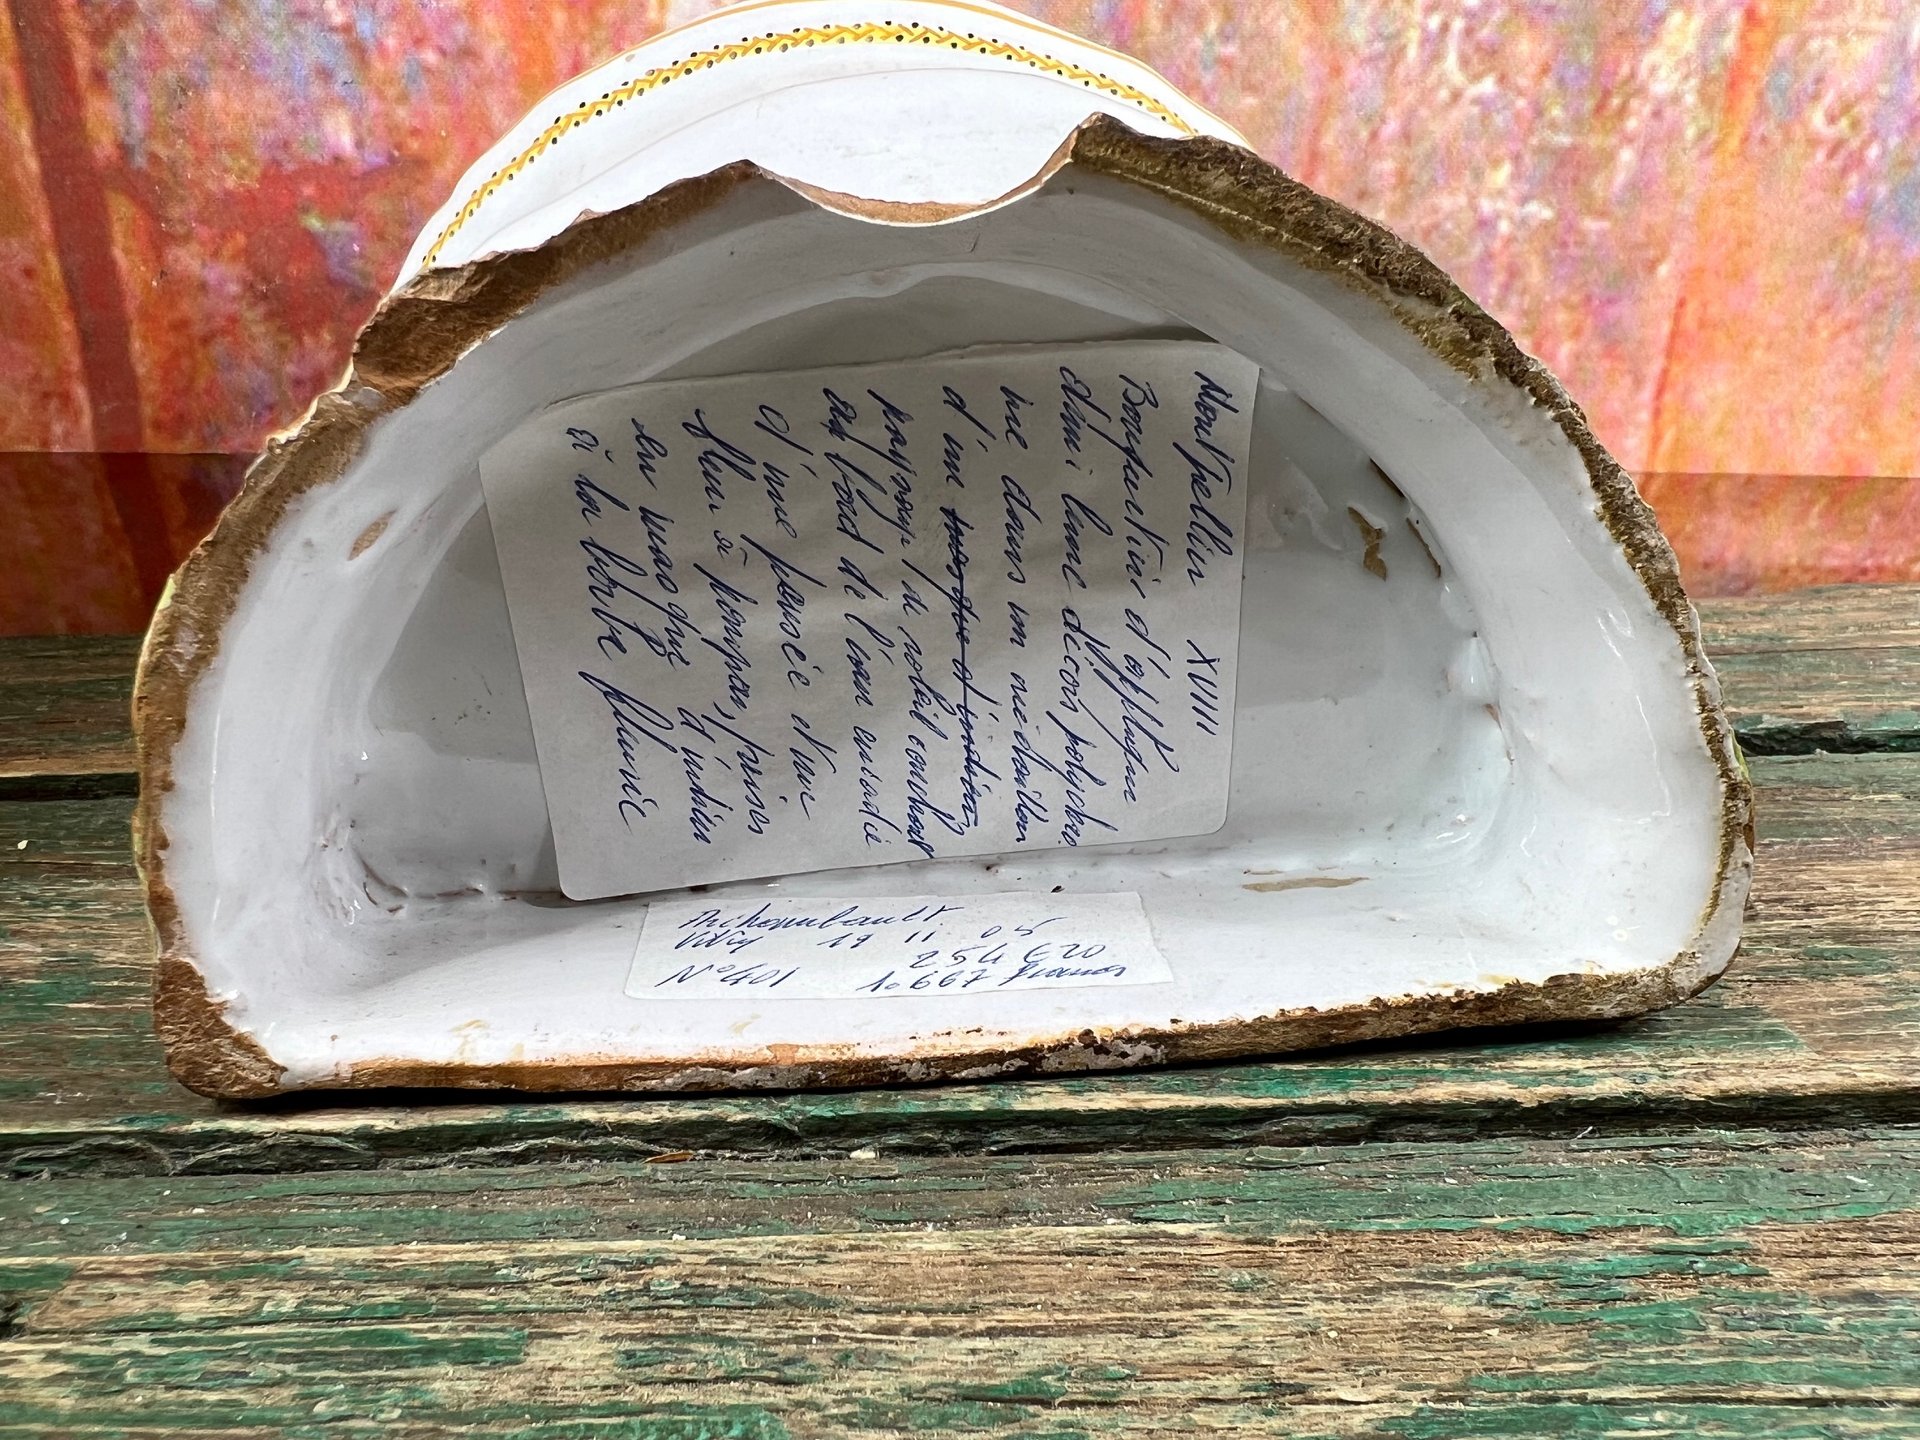 Montpellier XVIII
Bouquetière d'applique
demi lune décor polychro
me dans un médaillon
d'un masque d'indien
paysage de soleil couchant
au bord de l'eau encadré
d'une pensée d'une
fleur à pompon, prises
en masque d'indien
à la barbe fleurie
Archambault
Vichy 19 11 05
254 € 20
N° 401 1.667 francs